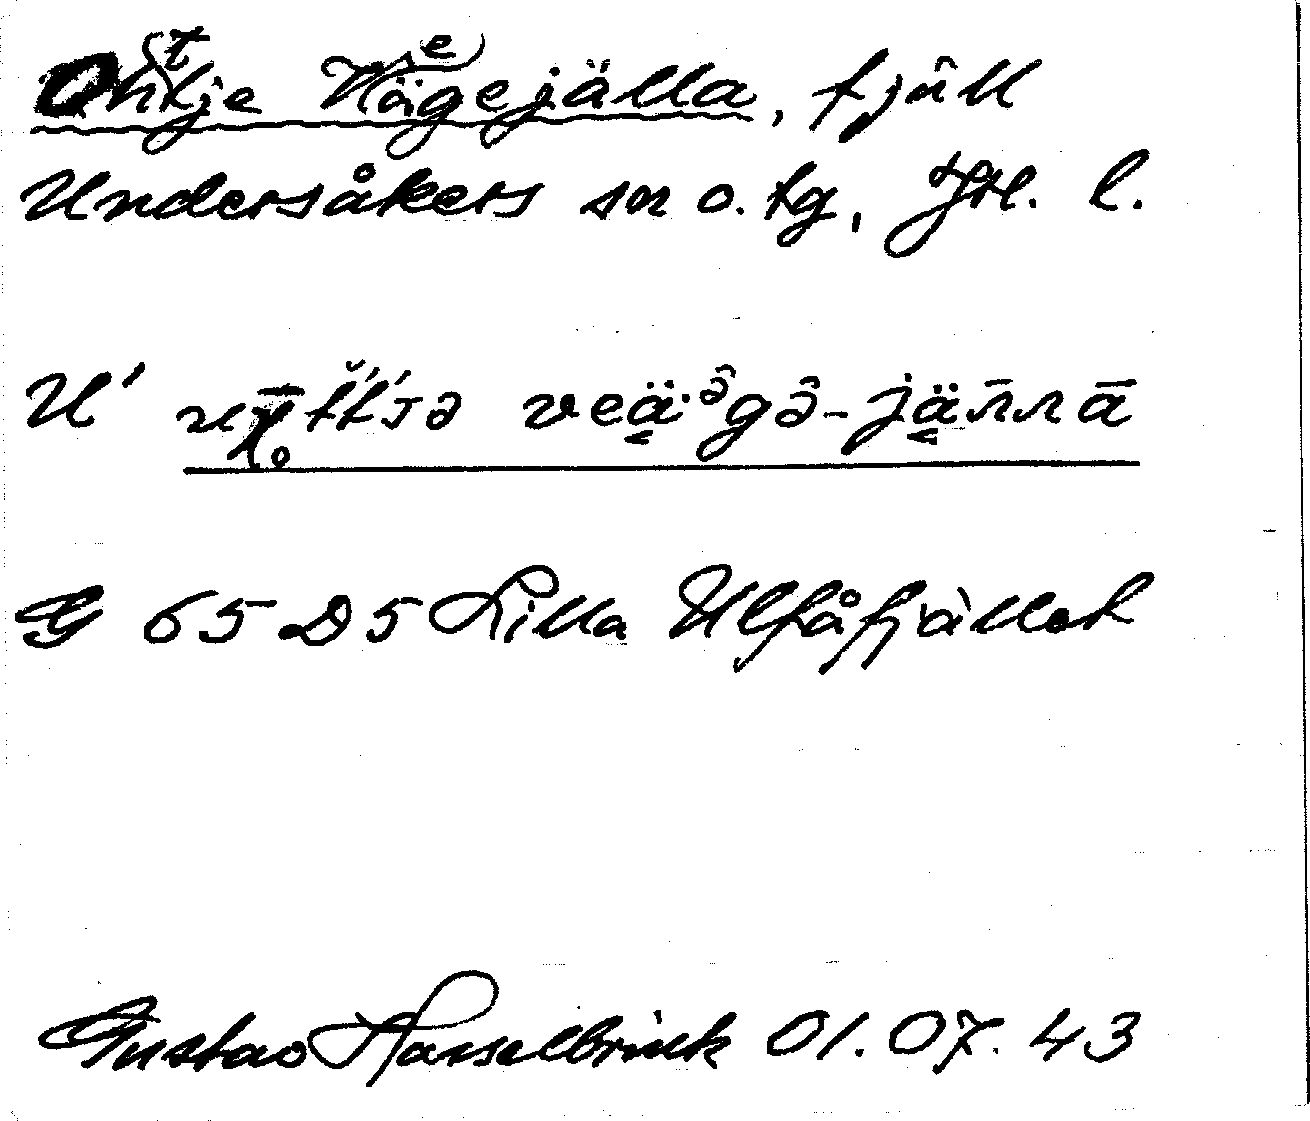 Ohtje Vägejälla, fjäll
Undersåkers sn o. tg, Jtl. l.
U'
G 65 D5 Lilla Ulfåfjället
Gustav Hasselbrink 01.07.43